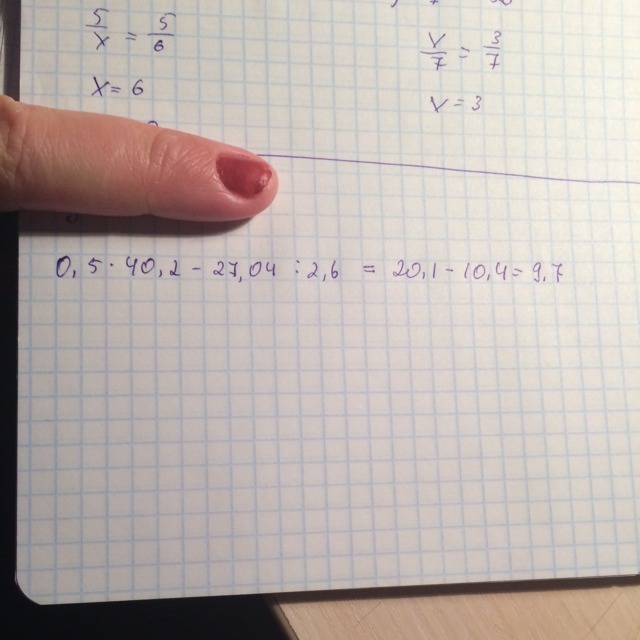 5/x = 5/6
x = 6
y/7 = 3/7
y = 3
0,5 · 40,2 - 27,04 : 2,6 = 20,1 - 10,4 = 9,7